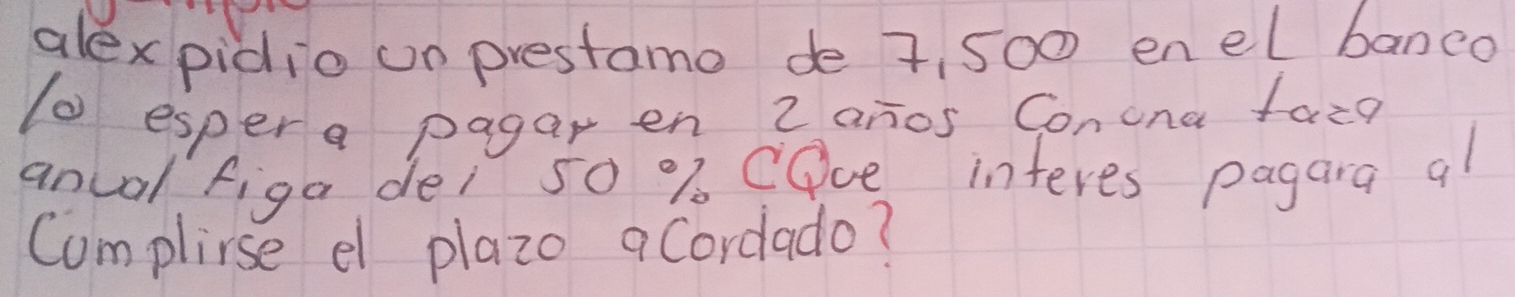 alex pidio un prestamo de 7,500 en el banco
lo espera pagar en 2 años Con una taza
anual figa del 50 % ¿Que interes pagara al
Cumplirse el plazo acordado?